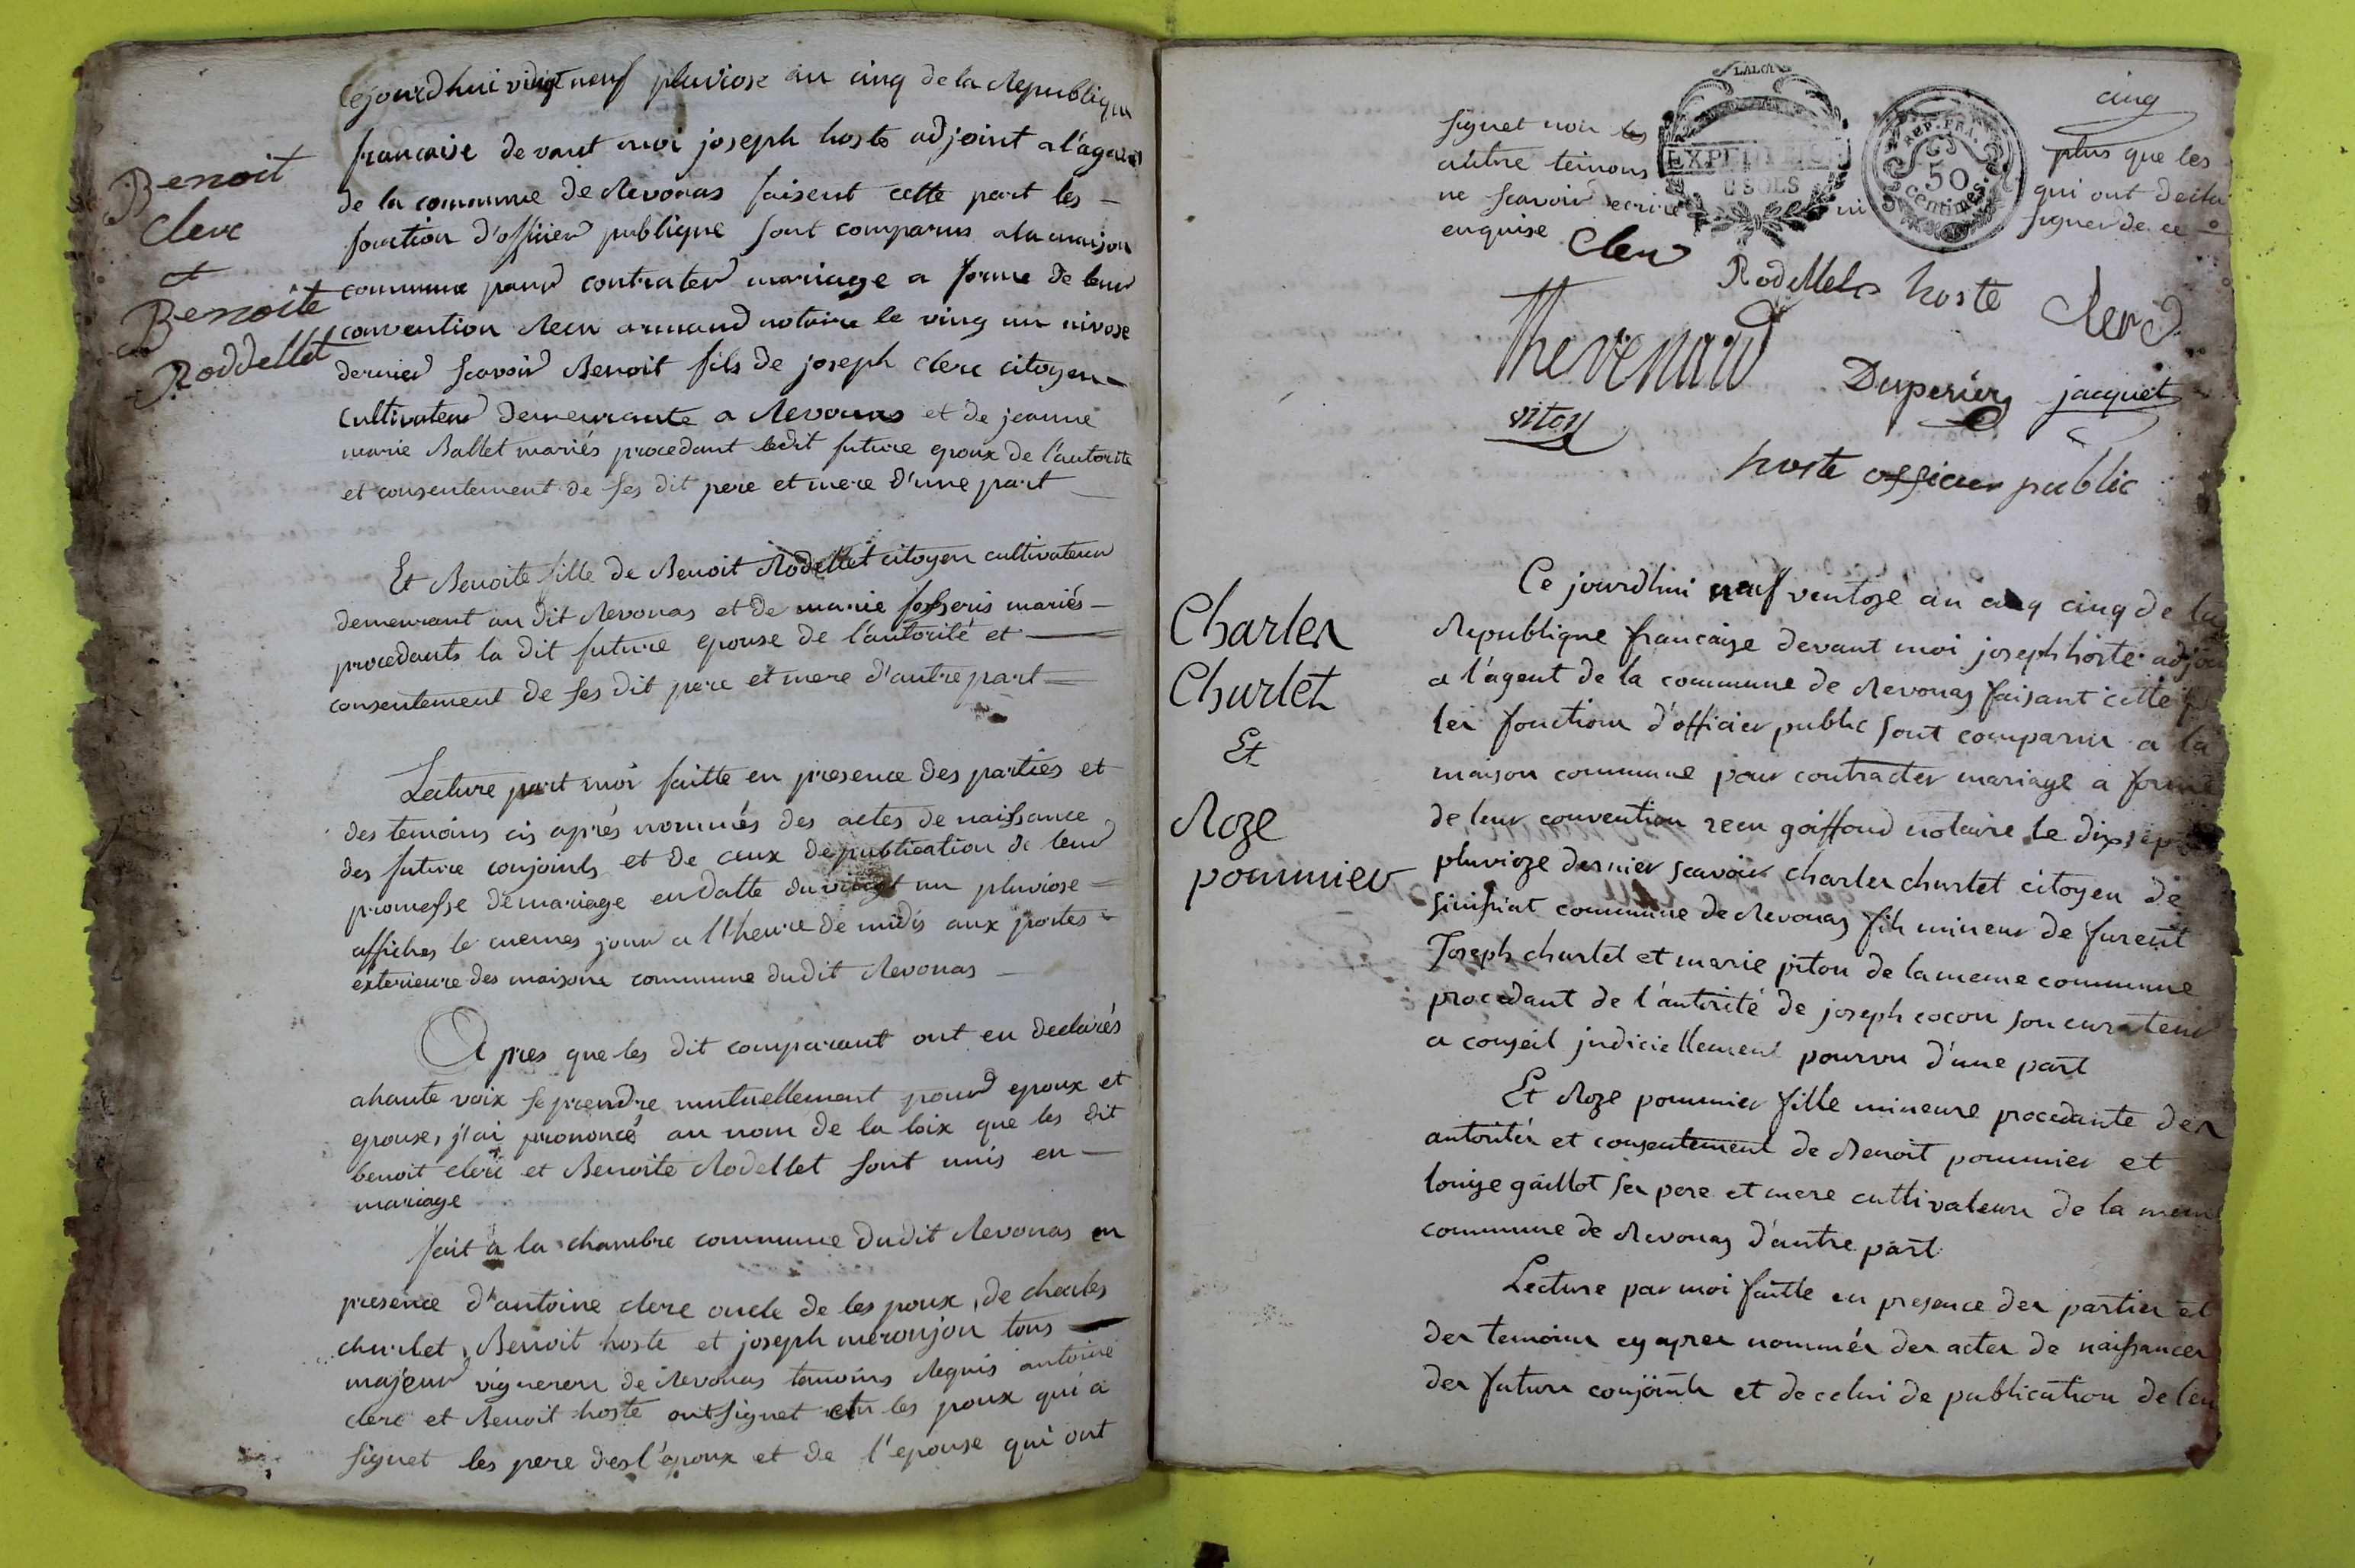 Benoit
Clerc
et
Benoite
Roddellet
Cejourdhui vingt neuf pluviose an cinq de la Republique
francaise devant moi joseph hoste adjoint a l'agent
de la commune de Revonas faisent cette part les
fonction d'officier publique sont comparus a la maison
commune pour contrater mariage a forme de leur
convention Recu armand notaire le ving un nivose
dernier scavoir Benoit fils de joseph clerc citoyen
cultivateur demeurante a Revonas et de jeanne
marie Ballet mariés procedant ledit future epoux de l'autorite
et consentement de ses dit pere et mere d'une part
Et Benoite fille de Benoit Rodellet citoyen cultivateur
demeurant au dit Revonas et de marie mariés
procedants la dit future epouse de l'autorité et
consentement de ses dit pere et mere d'autre part
Lecture part moi faitte en presence des parties et
des temoins cis après nommés des actes de naissance
des future conjoints et de ceux de publication de leur
promesse de mariage en datte du vingt un pluviose
affiches le memes jour a l'heure de midis aux portes
exterieure des maisons commune dudit Revonas
Apres que les dit comparant ont eu declarés
a haute voix se prendre mutuellement pour epoux et
epouse, j'ai prononcé au nom de la loix que les dit
benoit clerc et Benoite Rodellet sont unis en
mariage
fait à la chambre commune dudit Revonas en
presence d'antoine clerc oncle de les poux, de charles
churlet, Benoit hoste et joseph meronjon tous
majeur vigneron de Revonas temoins Requis antoine
clerc et Benoit hoste ont signet les poux qui a
signet les pere des l'epoux et de l'epouse qui ont
cinq
signet non les plus que les
autre temoins qui ont declar
ne scavoir ecrire ni signer de ce
enquise
LALOI
EXPEDITION
USOLS
REP. FRA
50
Centimes.
Clerc
Rodellet hoste Clerc
Thevenard
Duperier jacquet
viton
hoste officier public
Charles
Churlet
Et
Roze
pommier
Ce jourdhui neuf ventoze an cinq de la
Republique francaize devant moi joseph hoste adjoin
a l'agent de la commune de Revonas faisant cette
les fonctions d'officier public sont comparus a la
maison commune pour contracter mariage a forme
de leur convention recu goiffond notaire le dix sept
pluvioze dernier scavoir charles churlet citoyen de
commune de Revonas fils mineur de furent
Joseph churlet et marie piton de la meme commune
procedant de l'autorité de joseph cocon son curateur
a conseil judiciellement pourvu d'une part
Et Roze pommier fille mineure procedante des
autorités et consentement de Benoit pommier et
louise gaillot ses pere et mere cultivateurs de la meme
commune de Revonas d'autre part
Lecture par moi faitte en presence des parties et
des temoins cy apres nommés des actes de naissances
des futurs conjoints et de celui de publication de leu